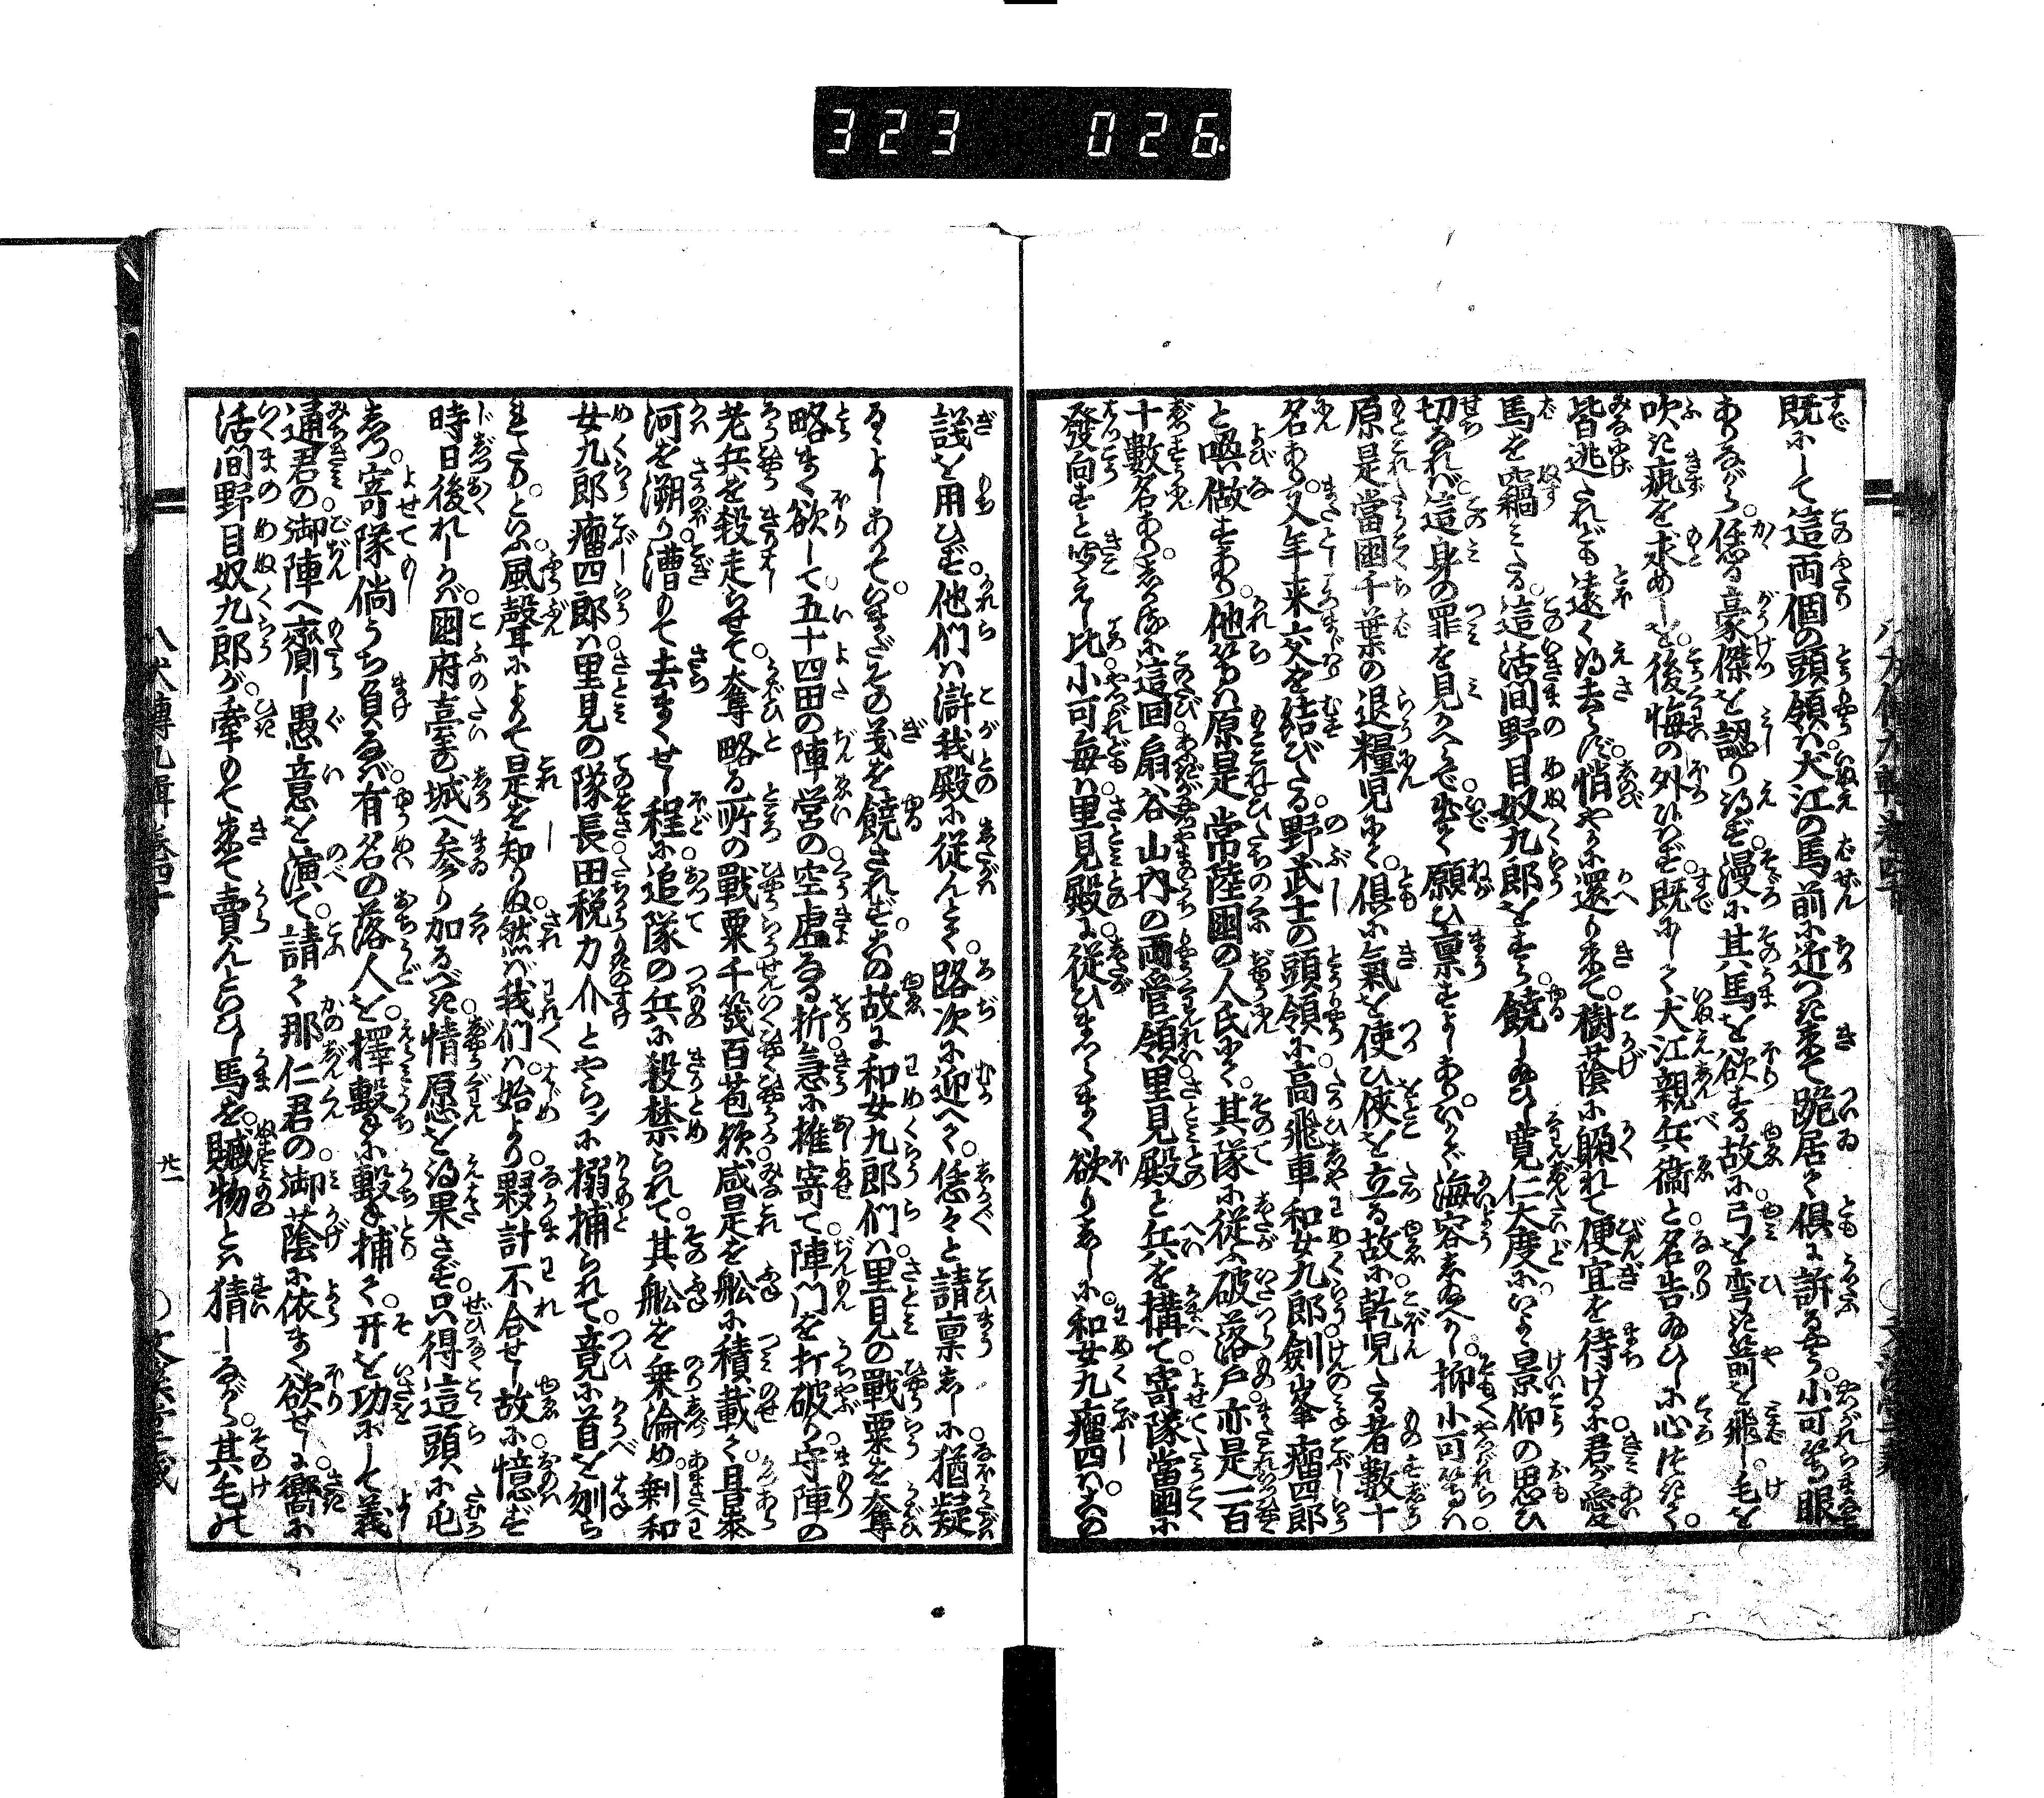 323 026
既にして這両個の頭領ハ犬江の馬前に近づき来て跪居て倶に訴るやう小可等眼
ありながら恁る豪傑を認り得ず漫に其馬を欲する故に弓を弯き箭を飛し毛を
吹き疵を求めしを後悔の外ハず既にして犬江親兵衛と名告ゐひしに心づきて
皆逃されども遠く得去らず悄やかに還り来て樹蔭に躱れて便宜を待けるに君が愛
馬を竊ミたる這活間野目奴九郎をすら饒しゐひし寛仁大度にいよゝ景仰の思ひ
切なれバ這身の罪を見かへらで出まく願ひ稟すよしありいかで海容しゐへかし抑小可等ハ
原是當國千葉の退糧児にて倶に氣を使ひ侠を立る故に乾児たる者數十
名あり又年来交を結びたる野武士の頭領に高飛車和女九郎劍峯瘤四郎
と喚做すあり他等ハ原是常陸國の人氏にて其隊に従ふ破落戸亦是一百
十數名ありしかるに這回扇谷山内の両管領里見殿と兵を搆て寄隊當國に
發向すと聞えし比小可毎ハ里見殿に従ひまゐらまく欲りせしに和女九瘤四ハその
議を用ひず他們ハ滸我殿に従んとて路次に迎へて恁々と請稟ししに猶疑
るゝよしありていまだその義を饒されずその故に和女九郎們ハ里見の戰粟を奪
略まく欲して五十四田の陣営の空虚なる折急に推寄て陣門を打破り守陣の
老兵を殺走らせて奪略る所の戰粟千幾百苞欤咸是を舩に積載て且泰
河を溯り漕もて去まくせし程に追隊の兵に殺禁られて其舩を乗淪め剰和
女九郎瘤四郎ハ里見の隊長田税力介とやらンに搦捕られて竟に首を刎ら
れたりといふ風聲によりて是を知りぬ然バ我們ハ始より夥計不合せし故に憶ず
時日後れしかバ國府臺の城へ参り加るべき情愿を得果さず只得這頭に屯
しつ寄隊倘うち負なバ有名の落人を擇撃に撃捕て开を功にして義
通君の御陣へ齎し愚意を演て請て那仁君の御蔭に依まく欲せしに嚮に
活間野目奴九郎が牽もて来て賣んといひし馬を贓物とハ猜しながら其毛の
八犬傳九輯巻四十
廿一